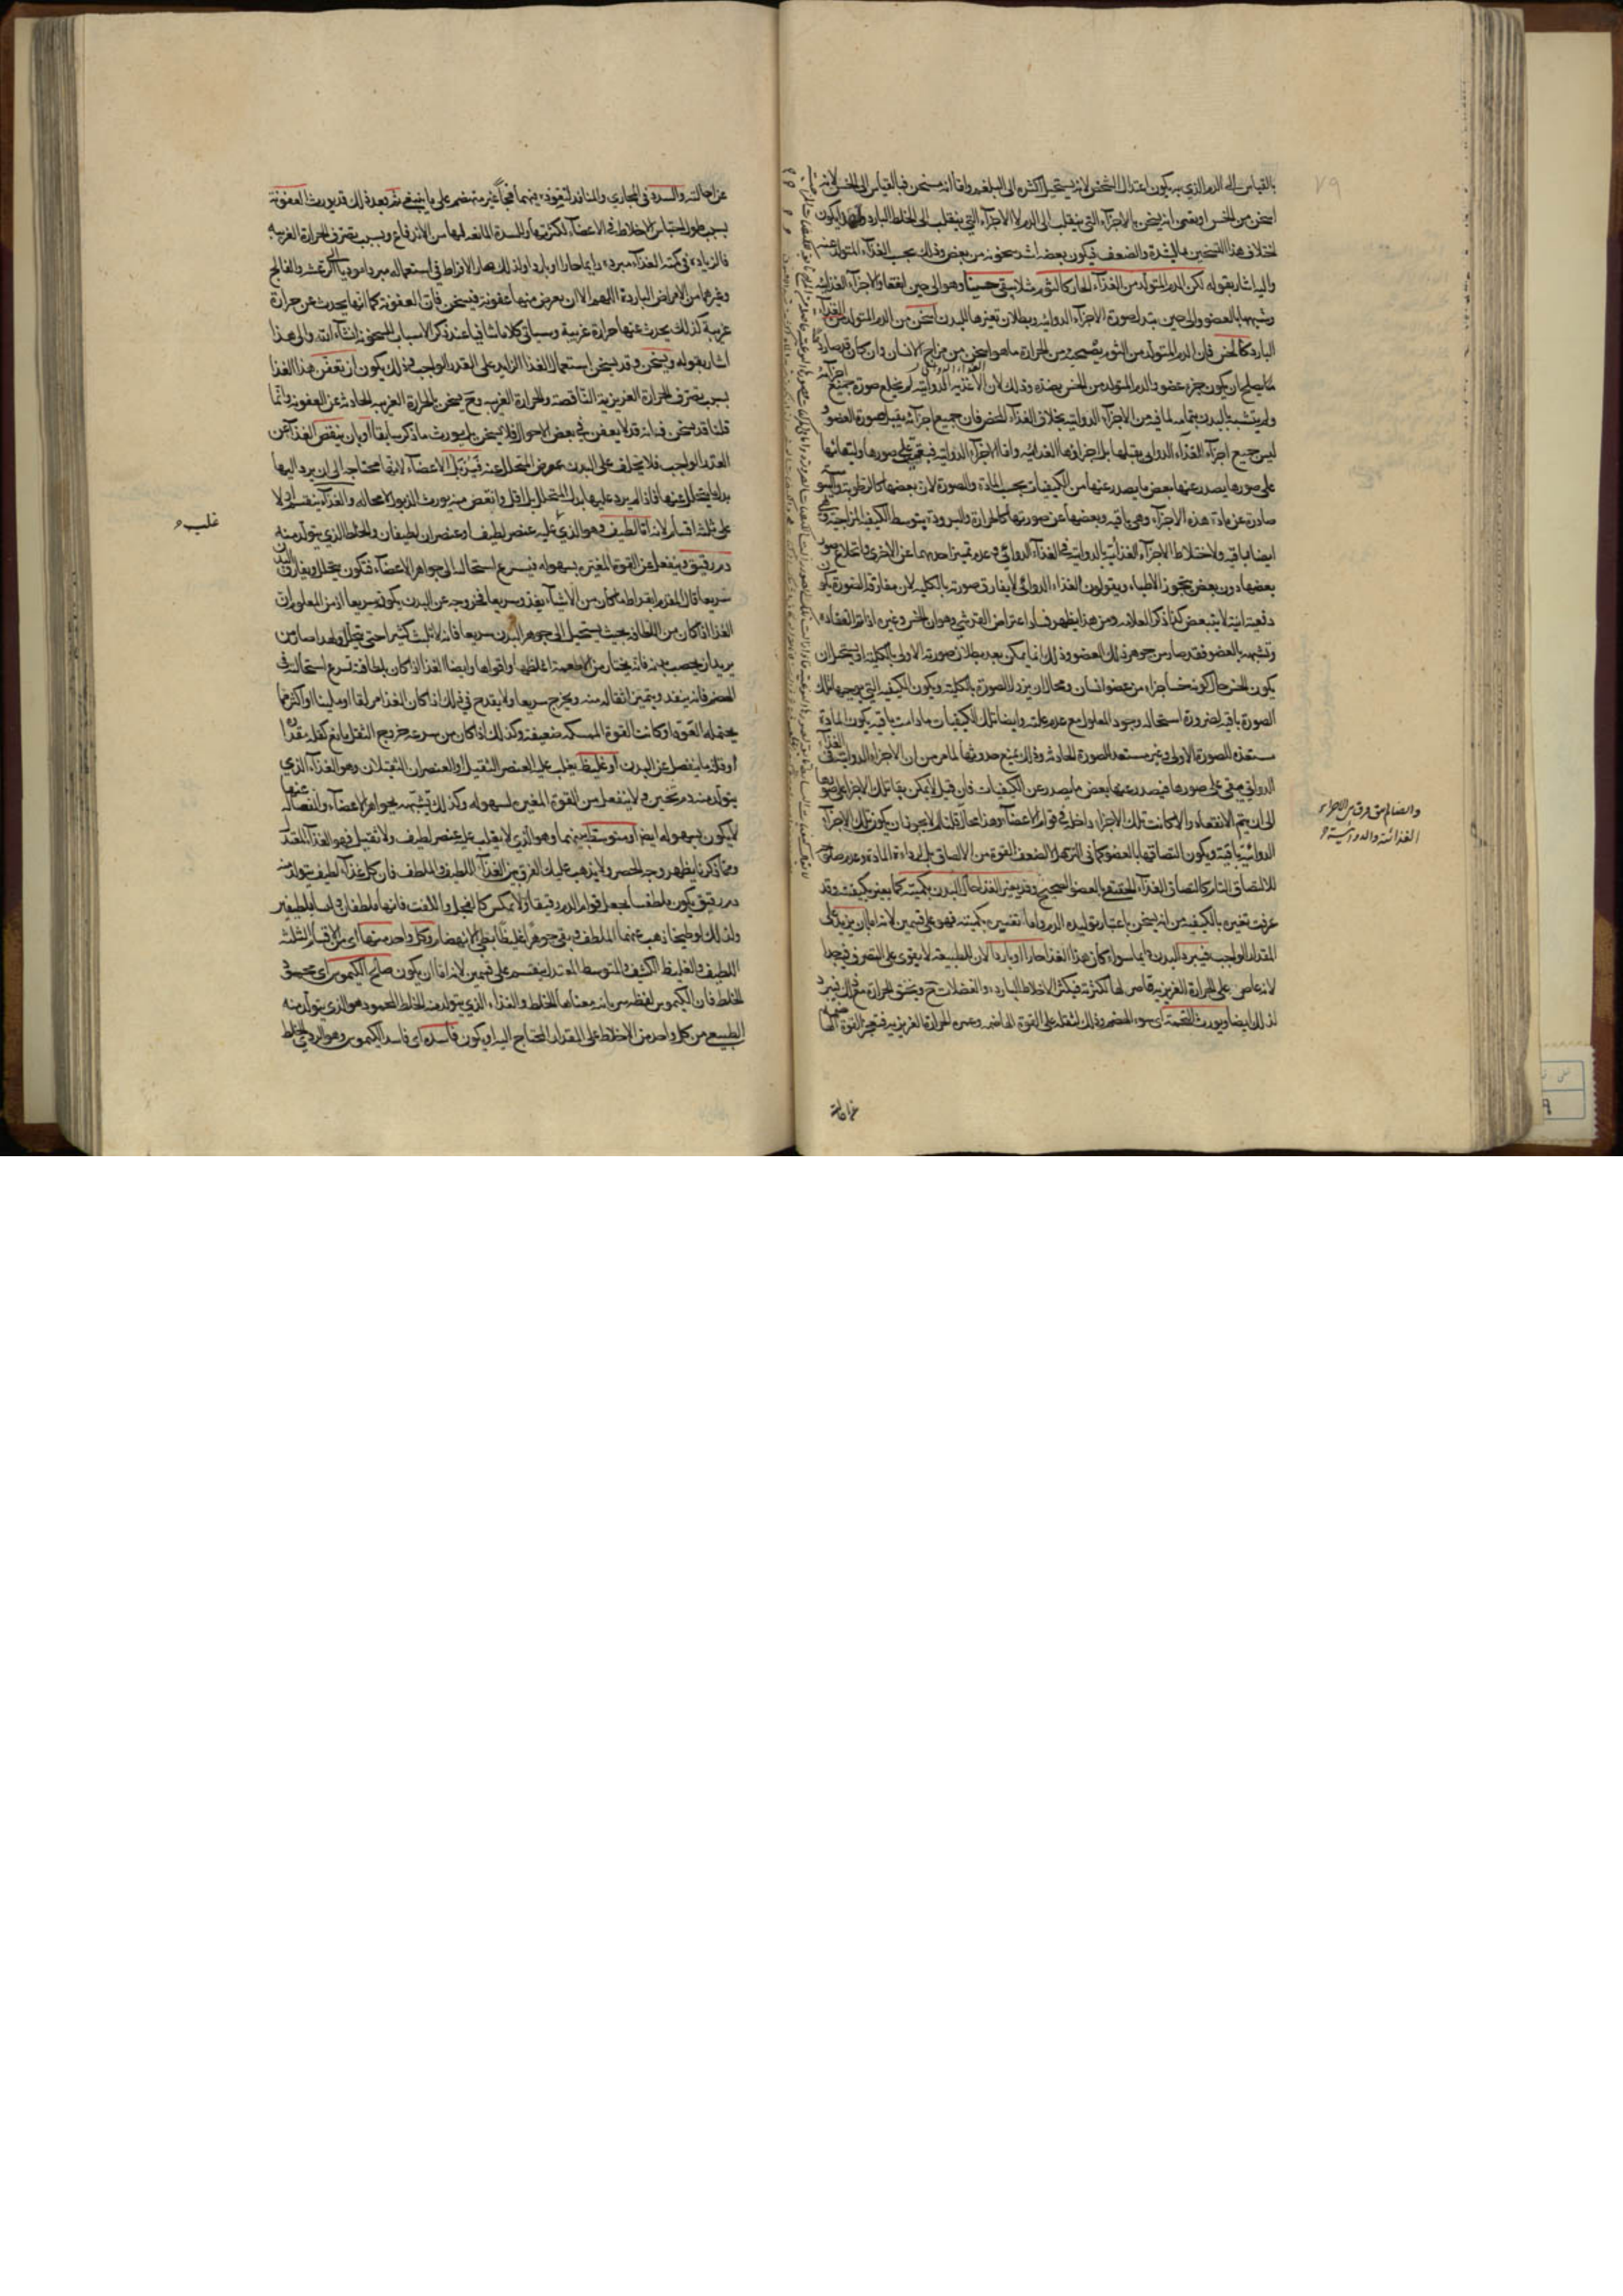 بالقياس الى الدم الذي به يكون اعتدال الشخص لانه يستحيل اكثره الى البلغم واما انه مسخن فبالقياس الى الخس لانه
اسخن من الخس او بمعنى انه يسخن بالاجزاء التي ينقلب الى الدم لا الاجزاء التي ينقلب الى الخلط البارد ويكون
اختلاف هذا التسخين بالشدة والضعف فيكون بعضه اشد سخونة من بعض وذلك بحسب الغذاء المتولد عنه
واليه اشار بقوله لكن الدم المتولد من الغذاء الحار كالثوم مثلا يبقى حينا وهو الى حين انعقاد الاجزاء الغذائية
وشبهها بالعضو والى حين تبدل صورة الاجزاء الدوائية وبطلان تغيرها للبدن اسخن من الدم المتولد من الغذاء
البارد كالخس فان الدم المتولد من الثوم يصحبه من الحرارة ما هو اسخن من مزاج الانسان وان كان قد صار دما
ما يصلح ان يكون جزء عضو والدم المتولد من الخس بضده وذلك لان الاغذية الدوائية لم يخلع صورة جميع اجزائه
ولم يتشبه بالبدن بتمامه لما فيه من الاجزاء الدوائية بخلاف الغذاء المحض فان جميع اجزائه يقبل صورة العضو
ليس جميع اجزاء الغذاء الدوائي يقبلها بل اجزاؤها الغذائية واما الاجزاء الدوائية فيبقى على صورها ولبقائها
على صورها يصدر عنها بعض ما يصدر عنها من الكيفيات بحسب المادة والصورة لان بعضها كالرطوبة واليبوسة
صادرة عن مادة هذه الاجزاء وهي باقية وبعضها عن صورتها كالحرارة والبرودة بتوسط الكيفية المزاجية وهي
ايضا باقية ولاختلاط الاجزاء الغذائية بالدوائية في الغذاء الدوائي وعدم تميز احدهما عن الاخرى وانخلاع صور
بعضها دون بعض يتجوز الاطباء ويقولون الغذاء الدوائي لا يفارق صورته بالكلية لان مفارقة الصورة يكون
دفعية انية لا يتبعض كذا ذكر العلامة ومن هذا يظهر فساد اعتراض القرشي وهو ان الخس وغيره اذا تم انعقاده
وتشبه بالعضو فقد صار من جوهر ذلك العضو وذلك انما يمكن بعد بطلان صورته الاولى بالكلية اذ يستحيل ان
يكون الخس حال كونه خسا جزاء من عضو انسان ومحال ان يزول الصورة بالكلية ويكون الكيفية التي يوجبها تلك
الصورة باقية لضرورة استحالة وجود المعلول مع عدم علته وايضا تلك الكيفيات ما دامت باقية يكون المادة
مستعدة للصورة الاولى وغير مستعدة للصورة الحادثة وذلك يمنع حدوثها لما مر من ان الاجزاء الدوائية في الغذاء
الدوائي يبقى على صورها فيصدر عنها بعض ما يصدر عن الكيفيات فان قيل لا يمكن بقاء تلك الاجزاء على صورها
الى ان يتم الانعقاد والا لكانت تلك الاجزاء داخلة في قوام الاعضاء وهذا محال قلنا لم لا يجوز ان يكون تلك الاجزاء
الدوائية باقية ويكون التصاقها بالعضو كما في الترهل لا لضعف القوة من الالصاق بل لرداءة المادة وعدم صلوحها
للالتصاق التام كالتصاق الغذاء الحقيقي بالعضو الصحيح وقد يغير الغذا حال البدن بكميته كما يغير بكيفيته وقد
عرفت تغيره بالكيفية من انه يسخن باعتبار توليده الدم واما تغييره بكميته فهو على قسمين لانه اما بان يزيد على
المقدار الواجب فيبرد البدن دايما سواء كان هذا الغذا حارا او باردا لان الطبيعة لا يقوى على التصرف فيه
لانه عاص على الحرارة الغريزية قاصر لها لكثرته فيكثر الاخلاط الباردة والفضلات ح ويختنق الحرارة من ذلك فيبرد
لذلك ايضا ويورث التخمة اى سوء الهضم وذلك لثقله على القوة الهاضمة وغمره الحرارة الغريزية فيعجز القوة الهاضمة
عن احالته
والصالم يبق فرق بين الاجزاء
الغذائية والدوائية
عن احالته والسدة في المجارى والمنافذ لنفوذه فيهما فجا غير منهضم على ما ينبغي ثم بعد ذلك قد يورث العفونة
بسبب طول احتباس الاخلاط في الاعضاء لكثرتها والسدة المانعة لها من الاندفاع وبسبب تصرف الحرارة الغريبة
فالزيادة في كمية الغذاء مبردة دايما حارا او باردا ولذلك صار الافراط في استعماله مبردا موديا الى الرعشة والفالج
وغيرهما من الامراض الباردة اللهم الا ان يعرض منها عفونة فيسخن فان العفونة كما انها يحدث عن حرارة
غريبة كذلك يحدث عنها حرارة غريبة وسياتى كلاما شافيا عند ذكر الاسباب المسخنة انشاء الله والى هذا
اشار بقوله ويسخن وقد يسخن استعمال الغذا الزايد على القدر الواجب وذلك يكون ان تعفن هذا الغذا
بسبب تصرف الحرارة الغريزية الناقصة والحرارة الغريبة وح يسخن بالحرارة الغريبة الحادثة عن العفونة وانما
قلنا قد يسخن فانه قد لا يعفن في بعض الاحوال فلا يسخن بل يورث ما ذكر سابقا او بان ينقص الغذا عن
القدر الواجب فلا يخلف على البدن عوض المتحلل عنه فيذبل الاعضاء لانها محتاجه الى ان يرد اليها
بدل ما يتحلل عنها فاذا لم يرد عليها بدل المتحلل بل اقل وانقص منه يورث الذبول لا محالة والغذاء ينقسم الى
على ثلثة اقسام لانه اما لطيف وهو الذي عليه عنصر لطيف او عنصران لطيفان والخلط الذي يتولد منه
دم رقيق وينفعل عن القوة المغيره بسهوله فيسرع استحالته الى جواهر الاعضاء فتكون يتحلل ويفارق البدن
سريعا قال المقدم ابقراط ما كان من الاشياء يغذو سريعا فخروجه عن البدن يكون سريعا اذ من المعلوم ان
الغذا اذا كان من اللطافة بحيث يستحيل الى جوهر البدن سريعا فانه لا تلبث كثيرا حتى يتحلل ولهذا صار من
يريد ان يخصب بدنه فانه يختار من الاطعمة اغلظها واقواها وايضا الغذا اذا كان بلطافته تسرع استحالته في
الهضم فانه ينفد ويتميز اثفاله منه ويخرج سريعا ولا يقدح في ذلك اذا كان الغذا مزلقا او ملينا او اكثر مما
يحتمله القوة او كانت القوة الممسكة ضعيفة وكذلك اذا كان من سرعة خروج الثفل مانع كقلة مقداره
او قلة ما ينفصل عن البدن او غليظ يغلب عليه العنصر الثقيل او العنصران الثقيلان وهو الغذاء الذي
يتولد منه دم ثخين ولا ينفعل من القوة المغيرة بسهوله وكذلك تشبهه بجواهر الاعضاء وانفصاله عنها
لا يكون بسهوله ايضا او متوسط بينهما وهو الذي لا يغلب عليه عنصر لطيف ولا ثقيل فهو الغذاء المعتدل
ومما ذكرنا يظهر وجه الحصر ولا يذهب عليك الفرق بين الغذاء اللطيف والملطف فان كل غذاء لطيف يتولد منه
دم رقيق يكون ملطفا يجعل قوام الدم رقيقا ولا ينعكس كالفجل واللفت فانهما ملطفان وليسا بلطيفين
ولذلك لو طبخا ذهب عنهما الملطف وبقي جوهرا غليظا بطى الانهضام وكل واحد منها اى من الاقسام الثلثة
اللطيف والغليظ الكثيف والمتوسط المعتدل ينقسم على قسمين لانه اما ان يكون صالح الكيموس اى محمود
الخلط فان الكيموس لفظه سريانيه معناها الخلط والغذاء الذي يتولد منه الخلط المحمود هو الذي يتولد منه
الطبيعي من كل واحد من الاخلاط على المقدار المحتاج اليه او يكون فاسده اى فاسد الكيموس وهو الردي الخلط
غلب